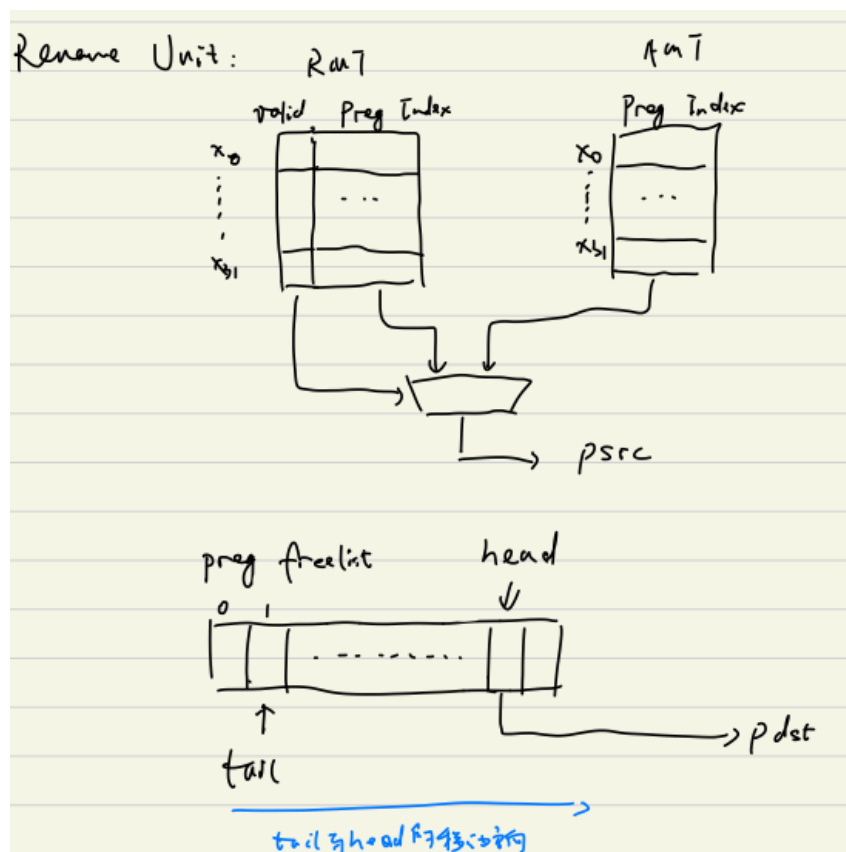 Rename Unit:
RMT
AMT
valid Preg Index
Preg Index
x0
x31
x0
x31
psrc
preg freelist
head
0 1
pdst
tail
tail与head的移动方向